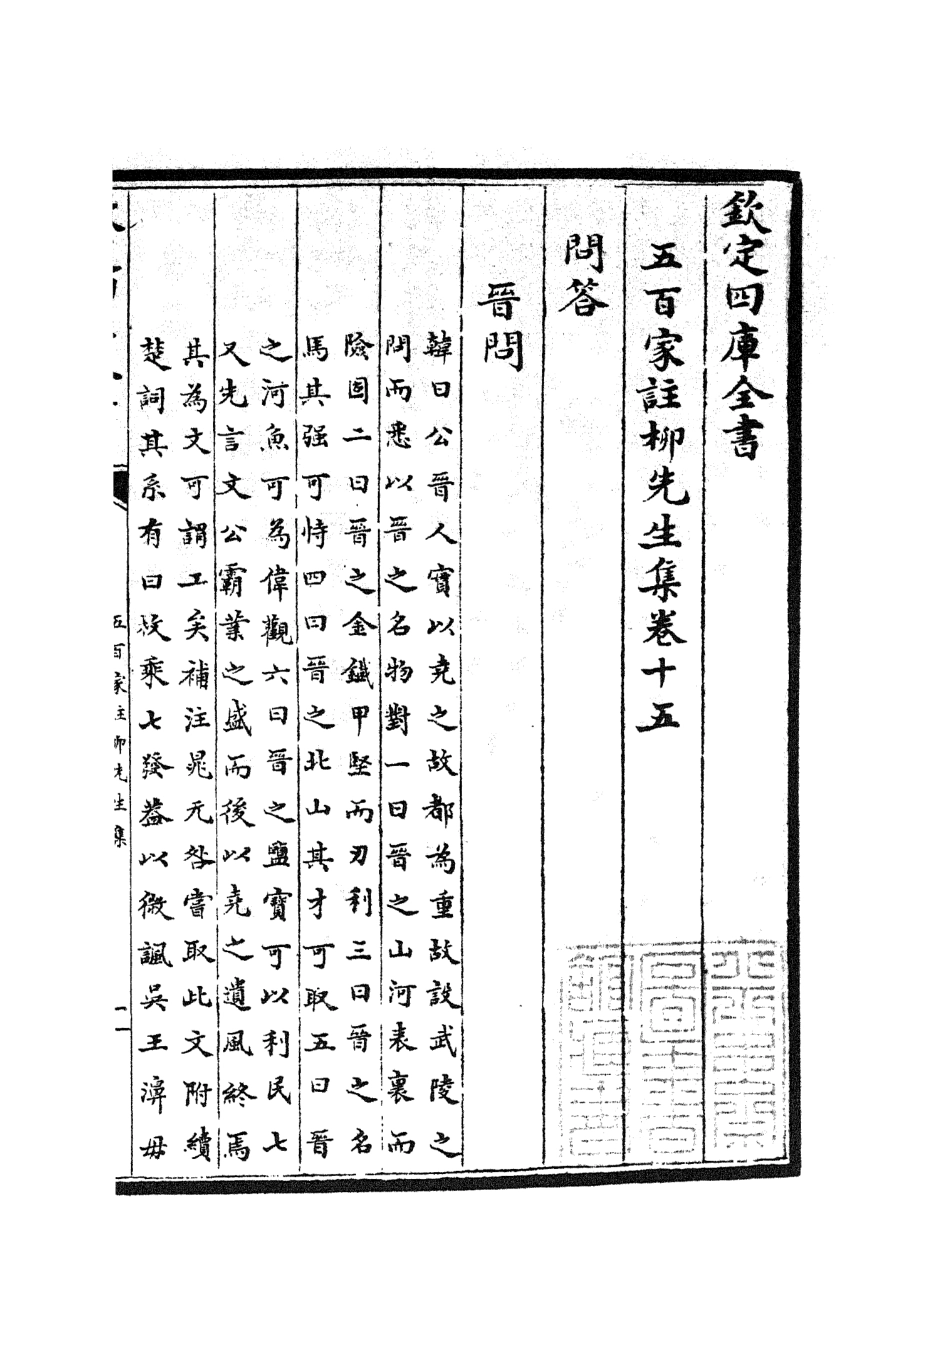 欽定四庫全書
五百家註柳先生集卷十五
問答
晉問
韓曰公晉人實以堯之故都為重故設武陵之
問而悉以晉之名物對一曰晉之山河表裏而
險固二曰晉之金鐵甲堅而刃利三曰晉之名
馬其强可恃四曰晉之北山其才可取五曰晉
之河魚可為偉觀六曰晉之鹽寶可以利民七
又先言文公霸業之盛而後以堯之遺風終焉
其為文可謂工矣補注晁无咎嘗取此文附續
楚詞其系有曰枚乘七發葢以微諷吳王濞毋
五百家註柳先生集